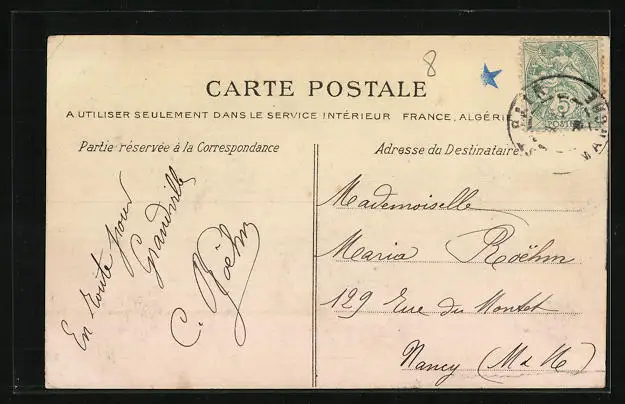 8
CARTE POSTALE
A UTILISER SEULEMENT DANS LE SERVICE INTÉRIEUR FRANCE, ALGÉRI
Partie réservée à la Correspondance
Adresse du Destinataire
En route pour
Grandville
C. Röehm
Mademoiselle
Maria Röehm
129 Rue du Montet
Nancy (M & M)
5
POSTE